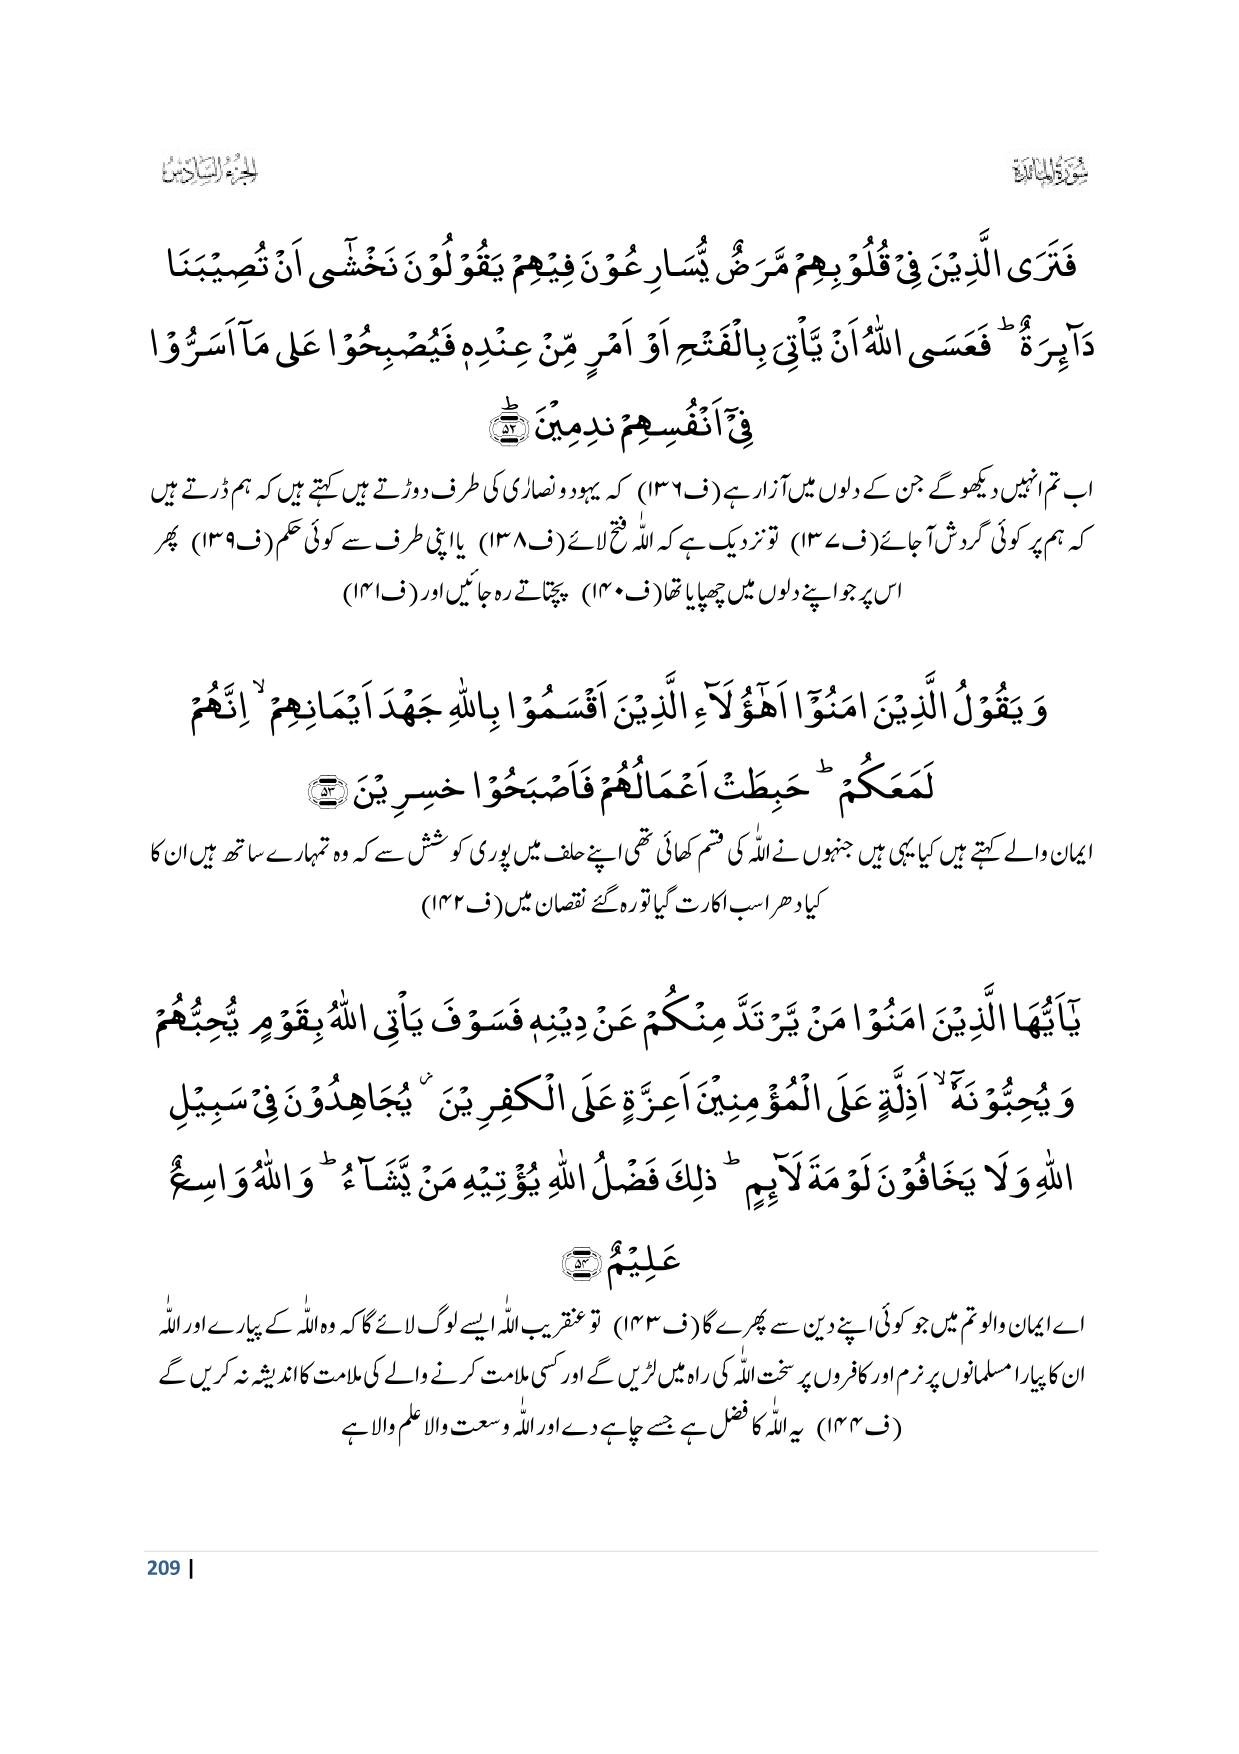 سُوْرَةُ الْمَائِدَة
الجزء السادس
فَتَرَى الَّذِیْنَ فِیْ قُلُوْبِهِمْ مَّرَضٌ یُّسَارِعُوْنَ فِیْهِمْ یَقُوْلُوْنَ نَخْشٰۤى اَنْ تُصِیْبَنَا
دَآىٕرَةٌؕ فَعَسَى اللّٰهُ اَنْ یَّاْتِیَ بِالْفَتْحِ اَوْ اَمْرٍ مِّنْ عِنْدِهٖ فَیُصْبِحُوْا عَلٰى مَاۤ اَسَرُّوْا
فِیْۤ اَنْفُسِهِمْ نٰدِمِیْنَؕ ﴿۵۲﴾
اب تم انہیں دیکھو گے جن کے دلوں میں آزار ہے (ف۱۳۶) کہ یہود و نصارٰی کی طرف دوڑتے ہیں کہتے ہیں کہ ہم ڈرتے ہیں
کہ ہم پر کوئی گردش آجائے (ف۱۳۷) تو نزدیک ہے کہ اللّٰہ فتح لائے (ف۱۳۸) یا اپنی طرف سے کوئی حکم (ف۱۳۹) پھر
اس پر جو اپنے دلوں میں چھپایا تھا (ف۱۴۰) پچتاتے رہ جائیں اور (ف۱۴۱)
وَ یَقُوْلُ الَّذِیْنَ اٰمَنُوْۤا اَهٰۤؤُلَآءِ الَّذِیْنَ اَقْسَمُوْا بِاللّٰهِ جَهْدَ اَیْمَانِهِمْۙ اِنَّهُمْ
لَمَعَكُمْؕ حَبِطَتْ اَعْمَالُهُمْ فَاَصْبَحُوْا خٰسِرِیْنَ ﴿۵۳﴾
ایمان والے کہتے ہیں کیا یہی ہیں جنہوں نے اللّٰہ کی قسم کھائی تھی اپنے حلف میں پوری کوشش سے کہ وہ تمہارے ساتھ ہیں ان کا
کیا دھرا سب اکارت گیا تو رہ گئے نقصان میں (ف۱۴۲)
یٰۤاَیُّهَا الَّذِیْنَ اٰمَنُوْا مَنْ یَّرْتَدَّ مِنْكُمْ عَنْ دِیْنِهٖ فَسَوْفَ یَاْتِی اللّٰهُ بِقَوْمٍ یُّحِبُّهُمْ
وَ یُحِبُّوْنَهٗۤۙ اَذِلَّةٍ عَلَى الْمُؤْمِنِیْنَ اَعِزَّةٍ عَلَى الْكٰفِرِیْنَ٘ یُجَاهِدُوْنَ فِیْ سَبِیْلِ
اللّٰهِ وَ لَا یَخَافُوْنَ لَوْمَةَ لَآىٕمٍؕ ذٰلِكَ فَضْلُ اللّٰهِ یُؤْتِیْهِ مَنْ یَّشَآءُؕ وَ اللّٰهُ وَاسِعٌ
عَلِیْمٌ ﴿۵۴﴾
اے ایمان والو تم میں جو کوئی اپنے دین سے پھرے گا (ف۱۴۳) تو عنقریب اللّٰہ ایسے لوگ لائے گا کہ وہ اللّٰہ کے پیارے اور اللّٰہ
ان کا پیارا مسلمانوں پر نرم اور کافروں پر سخت اللّٰہ کی راہ میں لڑیں گے اور کسی ملامت کرنے والے کی ملامت کا اندیشہ نہ کریں گے
(ف۱۴۴) یہ اللّٰہ کا فضل ہے جسے چاہے دے اور اللّٰہ وسعت والا علم والا ہے
209 |